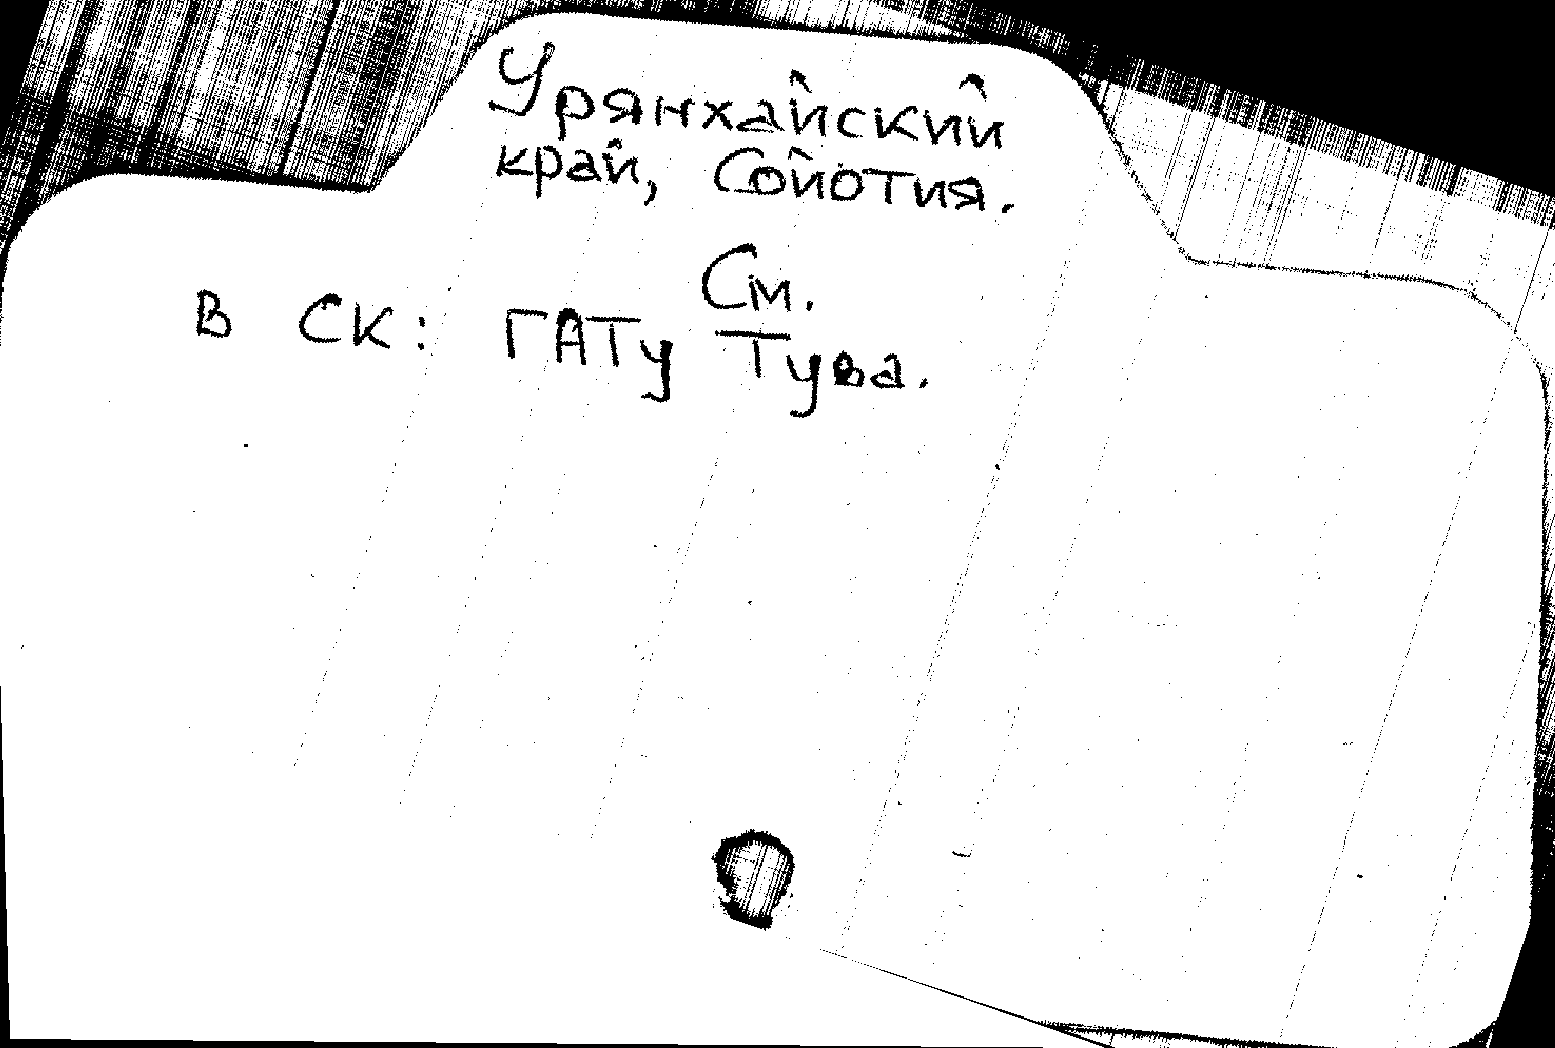 Урянхайский
край, Сойотия.
См.
в СК: ГАТу Тува.